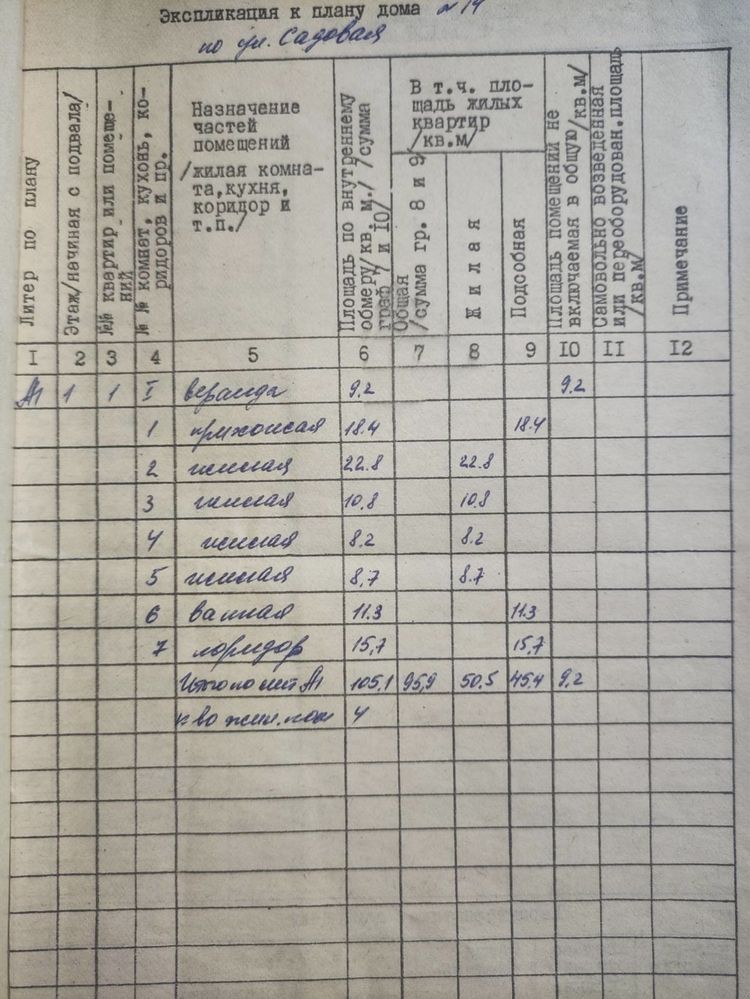 Экспликация к плану дома № 14
по ул. Садовая
Литер по плану
Этаж/начиная с подвала/
№№ квартир или помеще-
ний
№ № комнат, кухонь, ко-
ридоров и пр.
Назначение
частей
помещений
/жилая комна-
та,кухня,
коридор и
т.п./
Площадь по внутреннему
обмеру/кв. м./ /сумма
граф 7 и 10/
В т.ч. пло-
щадь жилых
квартир
/кв.м/
Общая
/сумма гр. 8 и 9/
Жилая
Подсобная
Площадь помещений не
включаемая в общую/кв.м/
Самовольно возведенная
или переоборудован.площадь
/кв.м/
Примечание
I 2 3 4 5 6 7 8 9 IO II I2
А1 1 1 I веранда 9,2 9,2
1 прихожая 18.4 18.4
2 жилая 22.8 22.8
3 жилая 10,8 10.8
4 жилая 8.2 8.2
5 жилая 8,7 8.7
6 ванная 11.3 11.3
7 коридор 15,7 15,7
Итого по лит А1 105,1 95,9 50.5 45.4 9,2
к-во жил. ком 4